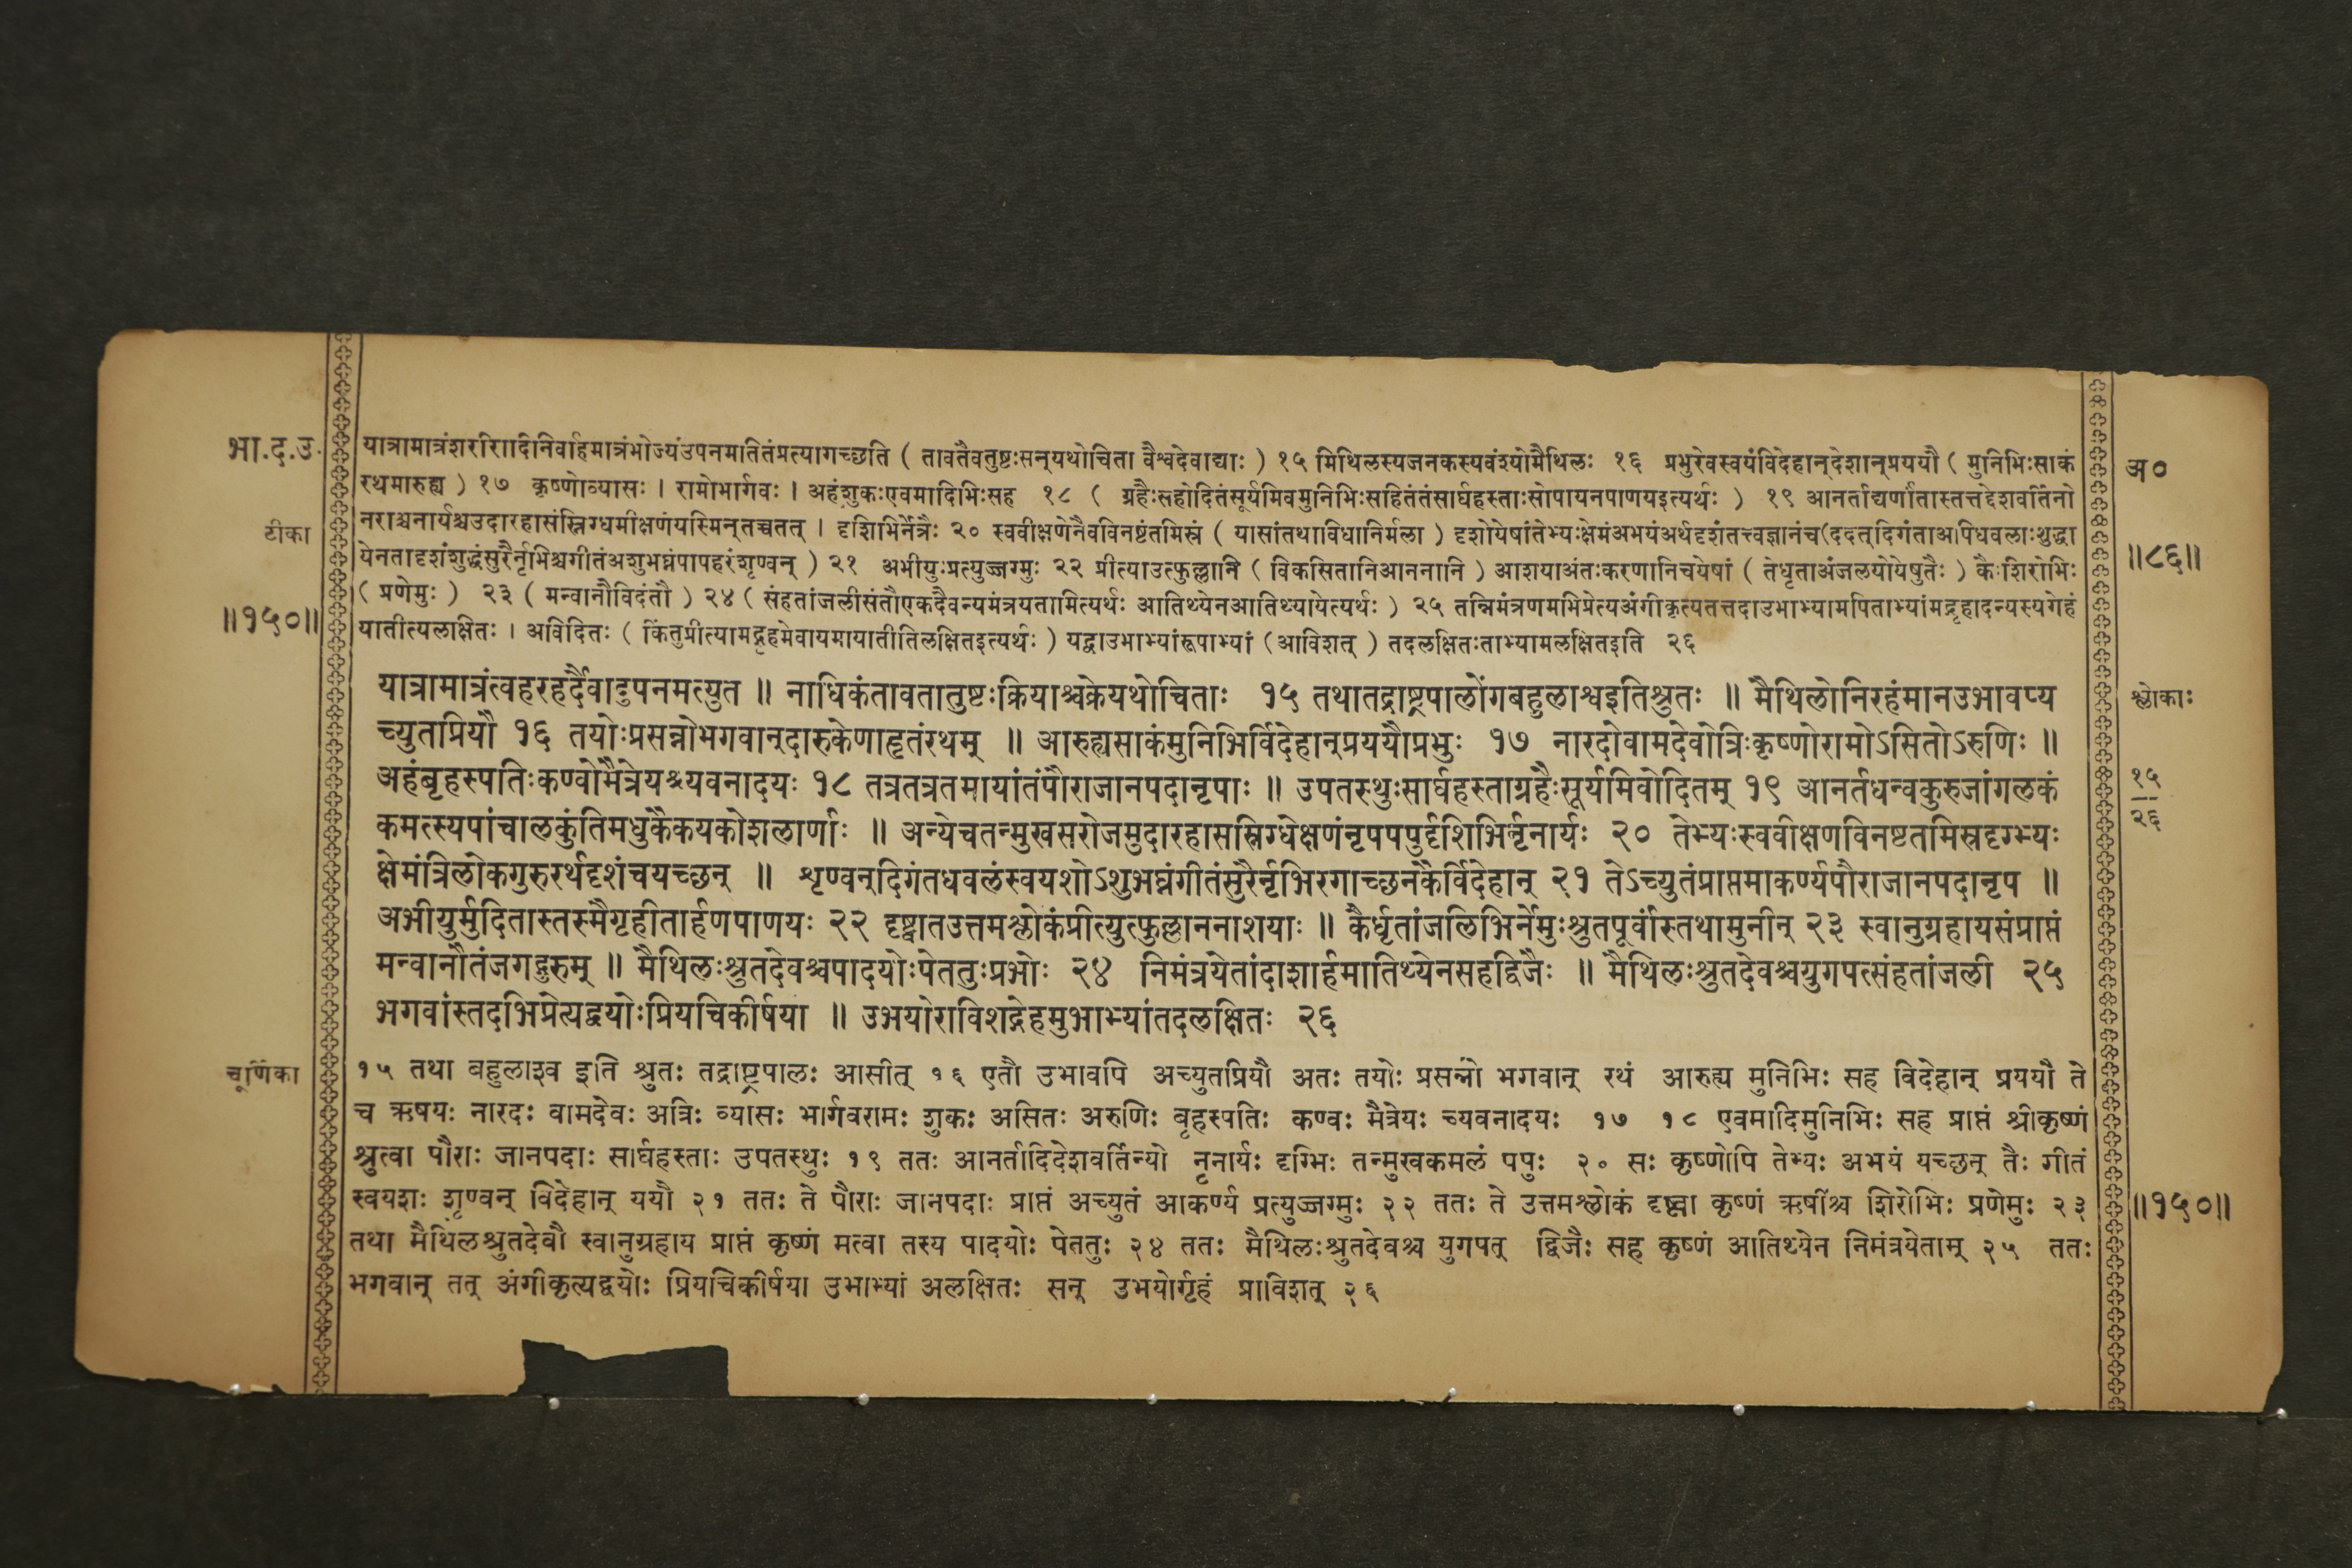 भा.द.उ.
यात्रामात्रंशरीरादिनिर्वाहमात्रंभोज्यंउपनमतितंप्रत्यागच्छति ( तावतैवतुष्टःसन्‌यथोचिता वैश्वदेवाद्याः ) १५ मिथिलस्यजनकस्यवंश्योमैथिलः १६ प्रभुरेवस्वयंविदेहान्‌देशान्‌प्रययौ ( मुनिभिःसाकं
रथमारुह्य ) १७ कृष्णोव्यासः । रामोभार्गवः । अहंशुकःएवमादिभिःसह १८ ( ग्रहैःसहोदितंसूर्यमिवमुनिभिःसहितंतंसार्घहस्ताःसोपायनपाणयइत्यर्थः ) १९ आनर्ताद्यर्णांतास्तत्तद्देशवर्तिनो
टीका
नराश्चनार्यश्चउदारहासंस्निग्धमीक्षणंयस्मिन्‌तच्चतत् । दृशिभिर्नेत्रैः २० स्ववीक्षणेनैवविनष्टंतमिस्रं ( यासांतथाविधानिर्मला ) दृशोयेषांतेभ्यःक्षेमंअभयंअर्थदृशंतत्त्वज्ञानंच(ददत्‌दिगंताअपिधवलाःशुद्धा
येनतादृशंशुद्धंसुरैर्नृभिश्चगीतंअशुभघ्नंपापहरंशृण्वन् ) २१ अभीयुःप्रत्युज्जग्मुः २२ प्रीत्याउत्फुल्लानि ( विकसितानिआननानि ) आशयाअंतःकरणानिचयेषां ( तेधृताअंजलयोयेषुतैः ) कैःशिरोभिः
( प्रणेमुः ) २३ ( मन्वानौविदंतौ ) २४ ( संहतांजलीसंतौएकदैवन्यमंत्रयतामित्यर्थः आतिथ्येनआतिथ्यायेत्यर्थः ) २५ तन्निमंत्रणमभिप्रेत्यअंगीकृत्यतत्तदाउभाभ्यामपिताभ्यांमद्गृहादन्यस्यगेहं
॥१५०॥
यातीत्यलक्षितः । अविदितः ( किंतुप्रीत्यामद्गृहमेवायमायातीतिलक्षितइत्यर्थः ) यद्वाउभाभ्यांरूपाभ्यां (आविशत् ) तदलक्षितःताभ्यामलक्षितइति २६
अ०
॥८६॥
यात्रामात्रंत्वहरहर्दैवादुपनमत्युत ॥ नाधिकंतावतातुष्टःक्रियाश्चक्रेयथोचिताः १५ तथातद्राष्ट्रपालोंगबहुलाश्वइतिश्रुतः ॥ मैथिलोनिरहंमानउभावप्य
श्लोकाः
च्युतप्रियौ १६ तयोःप्रसन्नोभगवान्‌दारुकेणाहृतंरथम् ॥ आरुह्यसाकंमुनिभिर्विदेहान्‌प्रययौप्रभुः १७ नारदोवामदेवोत्रिःकृष्णोरामोऽसितोऽरुणिः ॥
अहंबृहस्पतिःकण्वोमैत्रेयश्च्यवनादयः १८ तत्रतत्रतमायांतंपौराजानपदानृपाः ॥ उपतस्थुःसार्घहस्ताग्रहैःसूर्यमिवोदितम् १९ आनर्तधन्वकुरुजांगलकं
१५
२६
कमत्स्यपांचालकुंतिमधुकेकयकोशलार्णाः ॥ अन्येचतन्मुखसरोजमुदारहासस्निग्धेक्षणंनृपपपुर्दृशिभिर्नृनार्यः २० तेभ्यःस्ववीक्षणविनष्टतमिस्रदृग्भ्यः
क्षेमंत्रिलोकगुरुरर्थदृशंचयच्छन् ॥ शृण्वन्‌दिगंतधवलंस्वयशोऽशुभघ्नंगीतंसुरैर्नृभिरगाच्छनकैर्विदेहान् २१ तेऽच्युतंप्राप्तमाकर्ण्यपौराजानपदानृप ॥
अभीयुर्मुदितास्तस्मैगृहीतार्हणपाणयः २२ दृष्ट्वातउत्तमश्लोकंप्रीत्युत्फुल्लाननाशयाः ॥ कैर्धृतांजलिभिर्नेमुःश्रुतपूर्वांस्तथामुनीन् २३ स्वानुग्रहायसंप्राप्तं
मन्वानौतंजगद्गुरुम् ॥ मैथिलःश्रुतदेवश्चपादयोःपेततुःप्रभोः २४ निमंत्रयेतांदाशार्हमातिथ्येनसहद्विजैः ॥ मैथिलःश्रुतदेवश्चयुगपत्संहतांजली २५
भगवांस्तदभिप्रेत्यद्वयोःप्रियचिकीर्षया ॥ उभयोराविशद्गेहमुभाभ्यांतदलक्षितः २६
चूर्णिका
१५ तथा बहुलाश्व इति श्रुतः तद्राष्ट्रपालः आसीत् १६ एतौ उभावपि अच्युतप्रियौ अतः तयोः प्रसन्नो भगवान् रथं आरुह्य मुनिभिः सह विदेहान् प्रययौ ते
च ऋषयः नारदः वामदेवः अत्रिः व्यासः भार्गवरामः शुकः असितः अरुणिः बृहस्पतिः कण्वः मैत्रेयः च्यवनादयः १७ १८ एवमादिमुनिभिः सह प्राप्तं श्रीकृष्णं
श्रुत्वा पौराः जानपदाः सार्घहस्ताः उपतस्थुः १९ ततः आनर्तादिदेशवर्तिन्यो नृनार्यः दृग्भिः तन्मुखकमलं पपुः २० सः कृष्णोपि तेभ्यः अभयं यच्छन् तैः गीतं
स्वयशः शृण्वन् विदेहान् ययौ २१ ततः ते पौराः जानपदाः प्राप्तं अच्युतं आकर्ण्य प्रत्युज्जग्मुः २२ ततः ते उत्तमश्लोकं दृष्ट्वा कृष्णं ऋषींश्च शिरोभिः प्रणेमुः २३
॥१५०॥
तथा मैथिलश्रुतदेवौ स्वानुग्रहाय प्राप्तं कृष्णं मत्वा तस्य पादयोः पेततुः २४ ततः मैथिलःश्रुतदेवश्च युगपत् द्विजैः सह कृष्णं आतिथ्येन निमंत्रयेताम् २५ ततः
भगवान् तत् अंगीकृत्यद्वयोः प्रियचिकीर्षया उभाभ्यां अलक्षितः सन् उभयोर्गृहं प्राविशत् २६